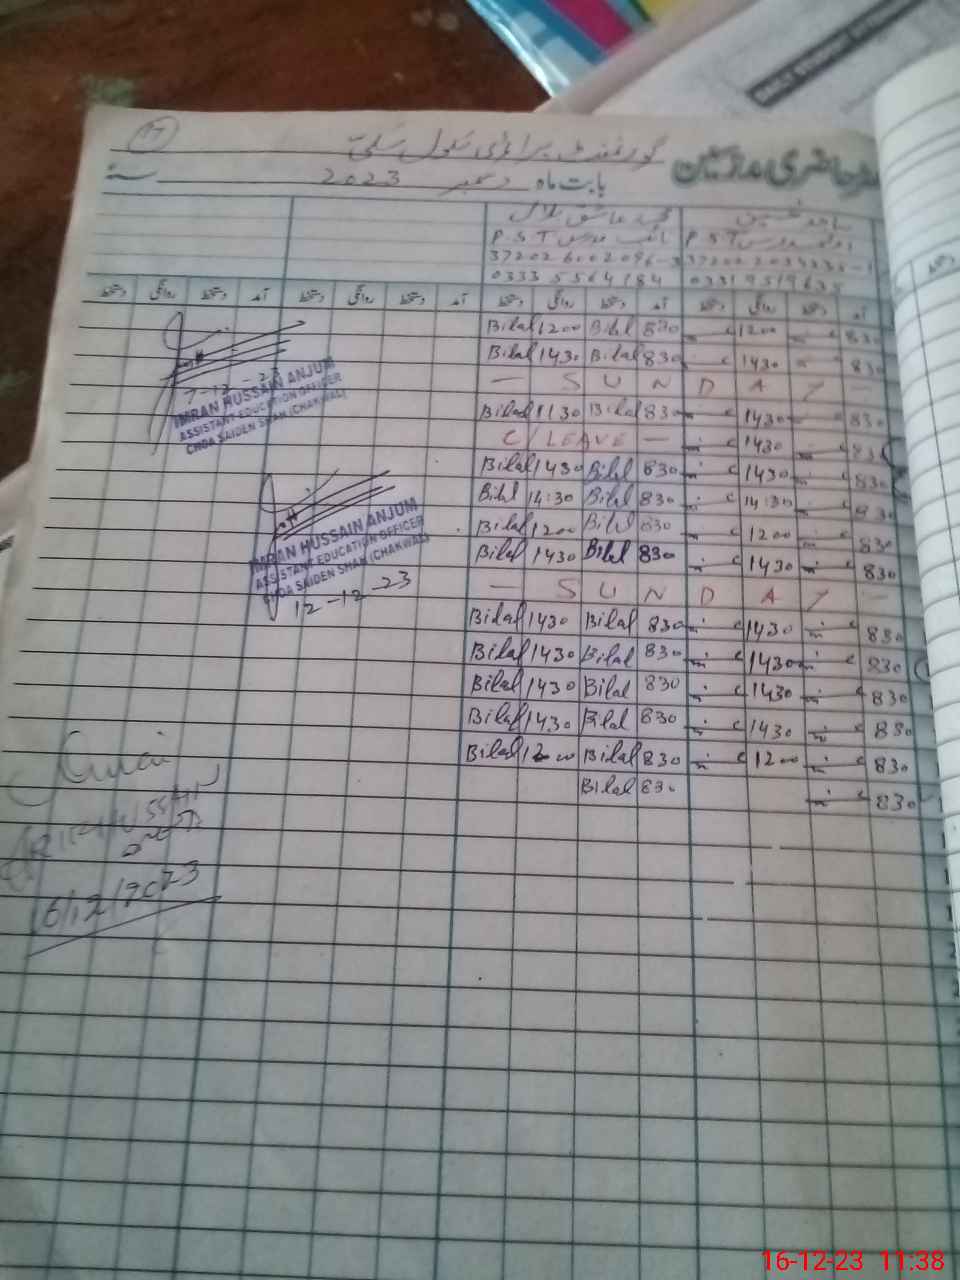 17
گورنمنٹ پرائمری سکول
حاضری مدرسین
بابت ماہ دسمبر 2023 سنہ
ساجد حسین
محمد عاشق بلال
P.S.T
نائب مدرس P.S.T
0333 5564184
آمد دستخط روانگی دستخط آمد دستخط روانگی دستخط آمد دستخط روانگی دستخط آمد دستخط روانگی دستخط
830 1200 830 Bilal 1200 Bilal
830 1430 830 Bilal 1430 Bilal
— S U N D A Y —
830 1430 830 Bilal 1130 Bilal
830 1430 C/LEAVE —
830 1430 830 Bilal 1430 Bilal
830 14:30 830 Bilal 14:30 Bilal
830 1200 830 Bilal 1200 Bilal
830 1430 830 Bilal 1430 Bilal
— S U N D A Y —
830 1430 830 Bilal 1430 Bilal
830 1430 830 Bilal 1430 Bilal
830 1430 830 Bilal 1430 Bilal
830 1430 830 Bilal 1430 Bilal
830 1200 830 Bilal 1200 Bilal
830 830 Bilal
IMRAN HUSSAIN ANJUM
ASSISTANT EDUCATION OFFICER
CHOA SAIDEN SHAH (CHAKWAL)
IMRAN HUSSAIN ANJUM
ASSISTANT EDUCATION OFFICER
CHOA SAIDEN SHAH (CHAKWAL)
12-12-23
16/12/2023
16-12-23 11:38